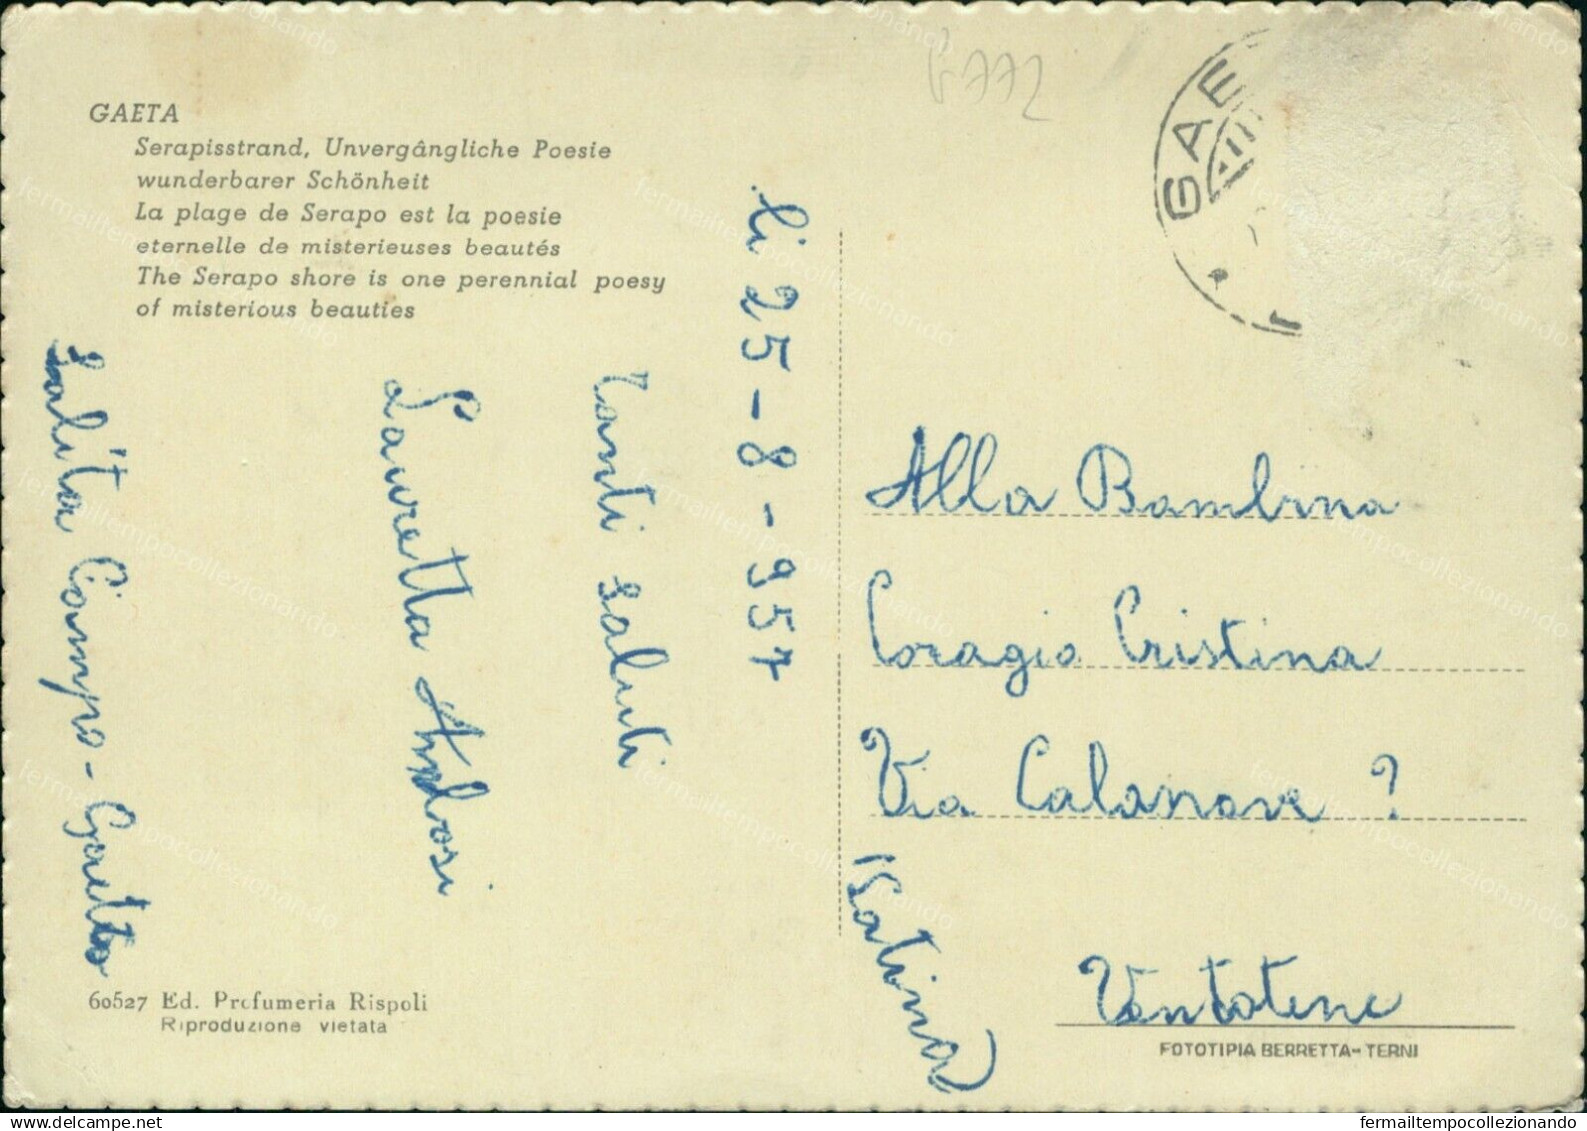 GAETA
Serapisstrand, Unvergângliche Poesie
wunderbarer Schönheit
La plage de Serapo est la poesie
eternelle de misterieuses beautés
The Serapo shore is one perennial poesy
of misterious beauties
li 25-8-957
Tanti saluti
Lauretta
Salita Ciampo-Gaeta
60527 Ed. Profumeria Rispoli
Riproduzione vietata
GAE
Alla Bambina
Coragio Cristina
Via Calanave ?
(Latina)
Ventotene
FOTOTIPIA BERRETTA-TERNI
fermailtempocollezionando
delcampe.net
fermailtempocollezionando